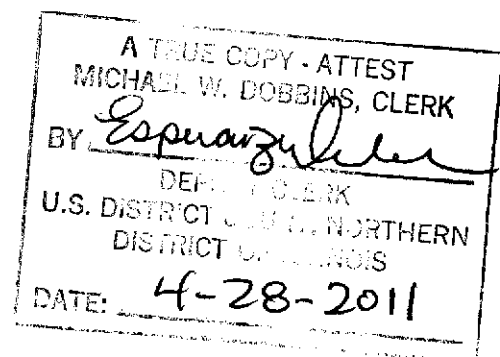 A TRUE COPY - ATTEST
MICHAEL W. DOBBINS, CLERK
BY Esperanza
DEPUTY CLERK
U.S. DISTRICT COURT, NORTHERN
DISTRICT OF ILLINOIS
DATE: 4-28-2011